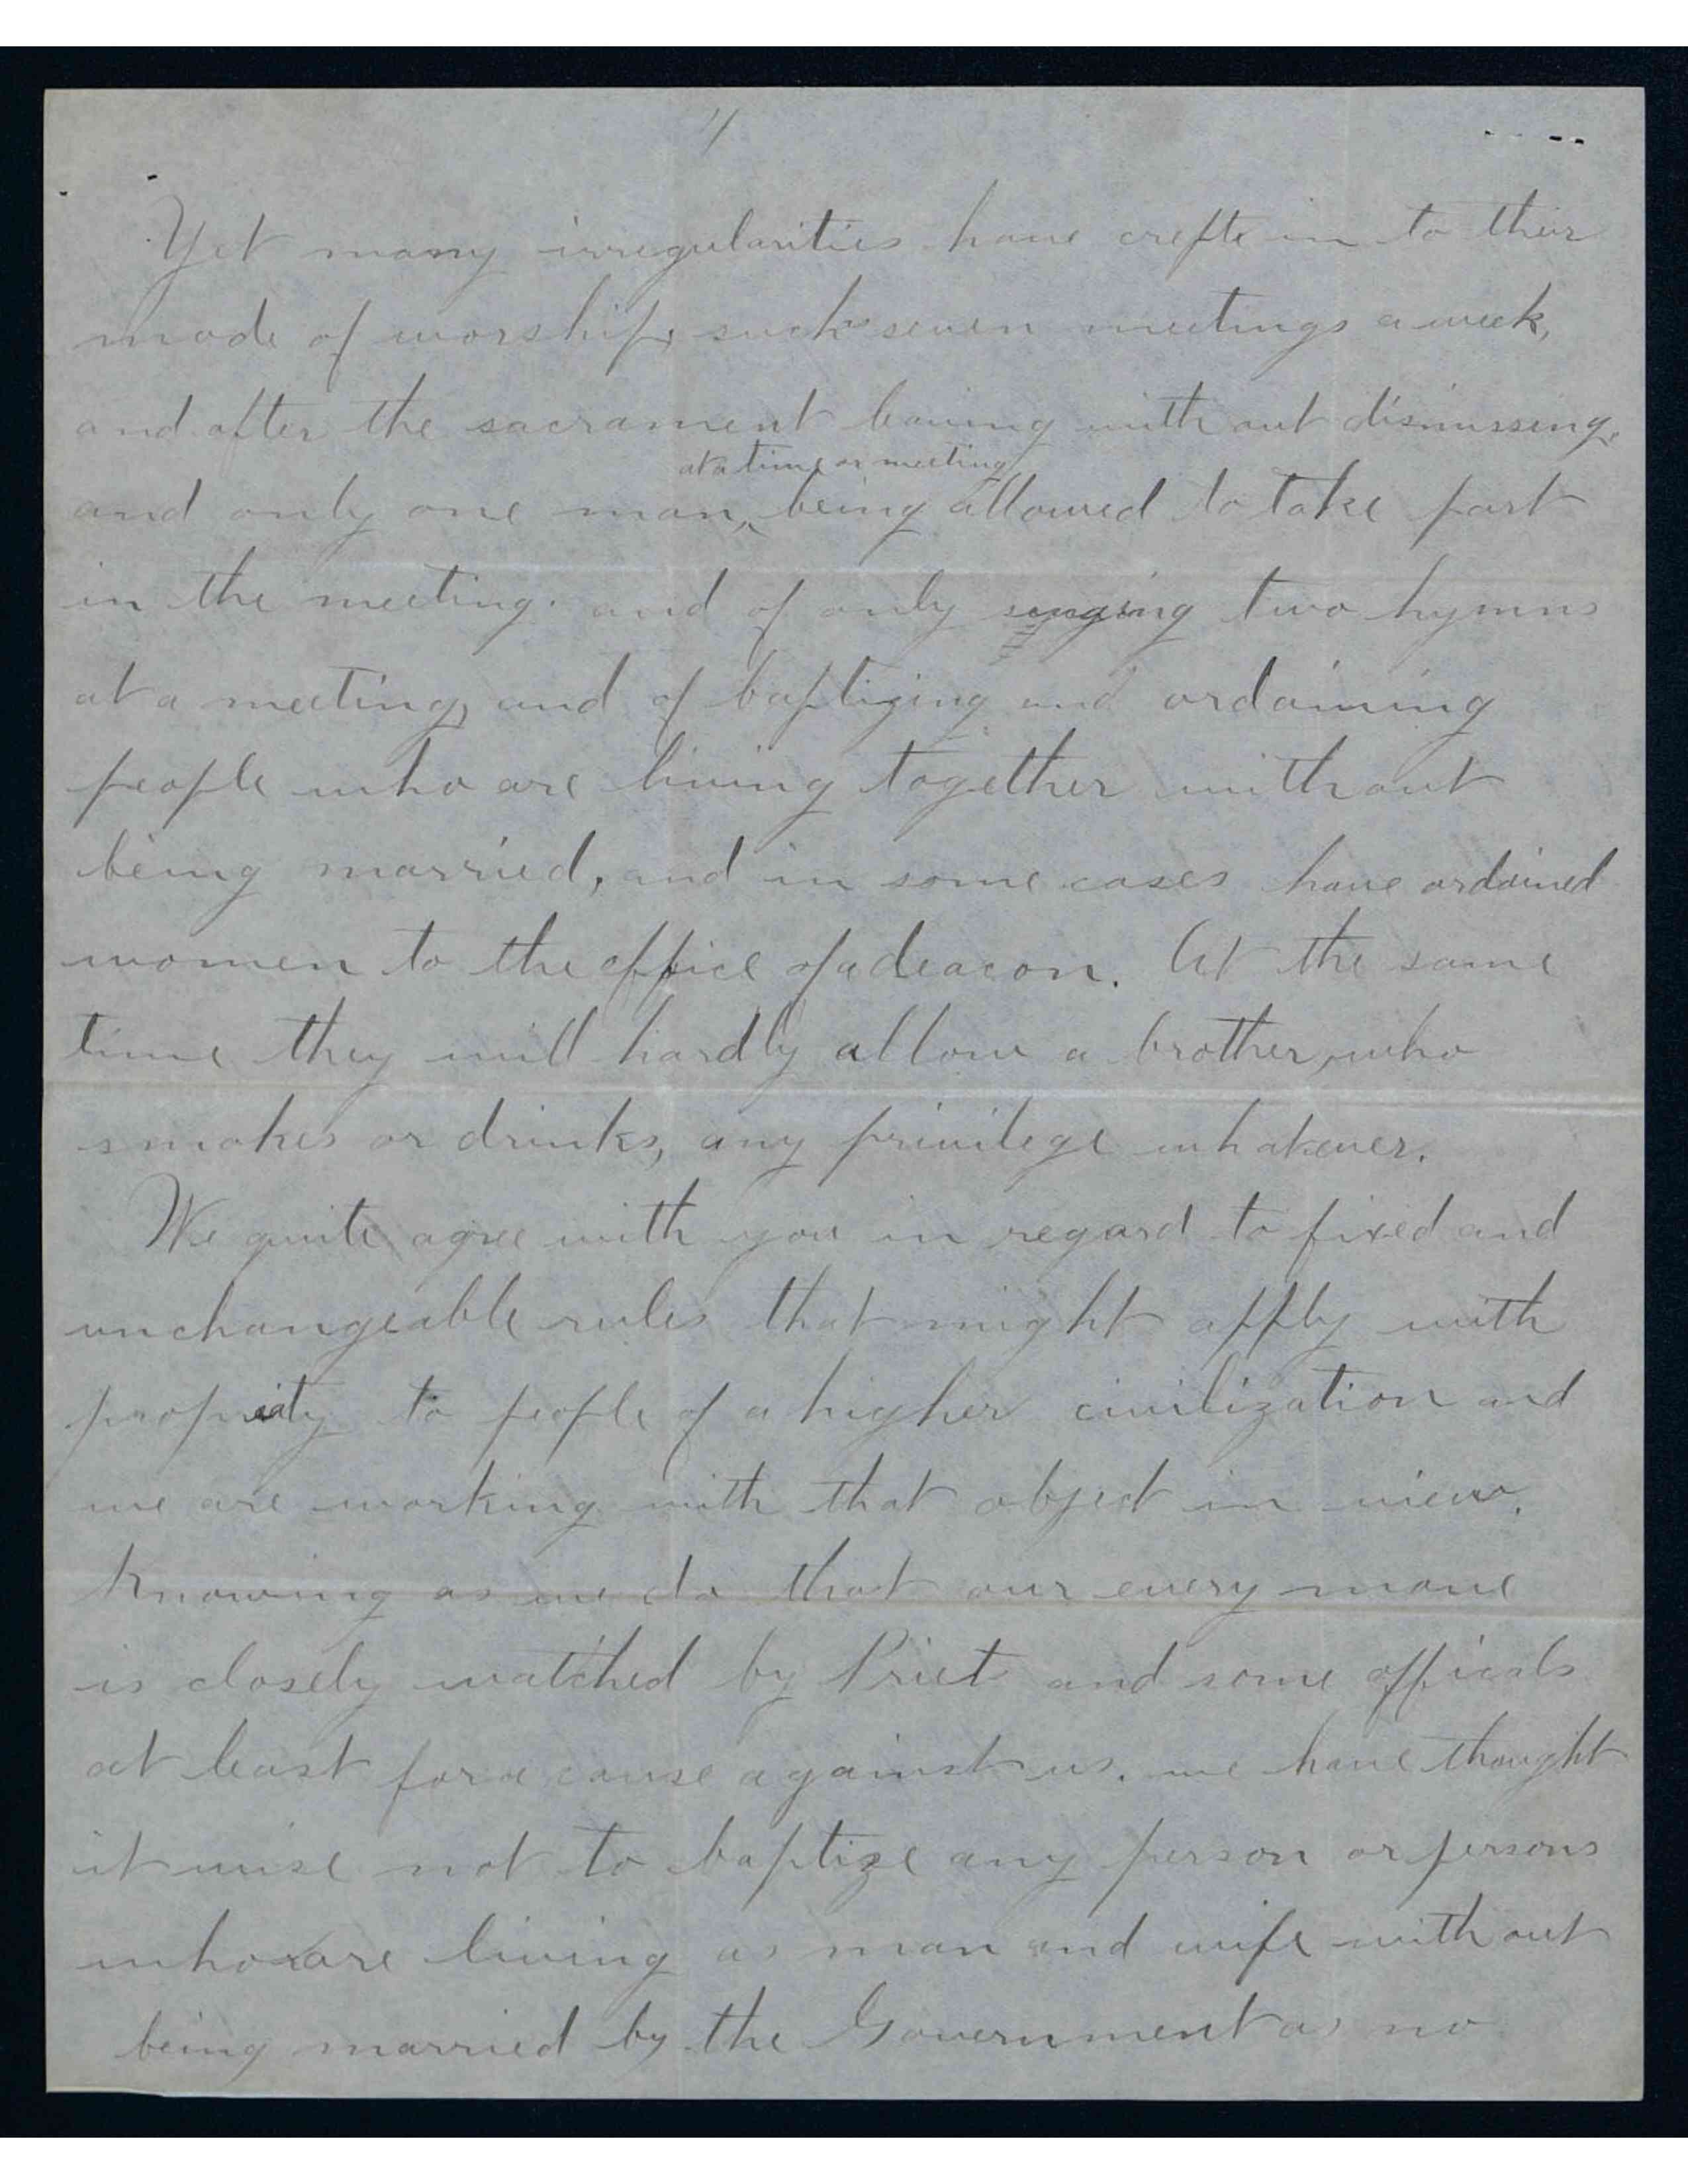 Yet many irregularities have crepte in to their
mode of worship, such seven meetings a week,
and after the sacrament leaving with out dismissing,
at a time or meeting
and only one man, being allowed to take part
in the meeting. and of only singing two hymns
at a meeting, and of baptizing and ordaining
people who are living together without
being married, and in some cases have ordained
women to the office of a deacon. At the same
time they will hardly allow a brother, who
smokes or drinks, any privilege whatever.
We quite agree with you in regard to fixed and
unchangeable rules that might apply with
propriety to people of a higher civilization and
we are working with that object in view.
Knowing as we do that our every move
is closely watched by Priet and some officals
at least for a cause against us. we have thought
it wise not to baptize any person or persons
who are living as man and wife with out
being married by the Government as no